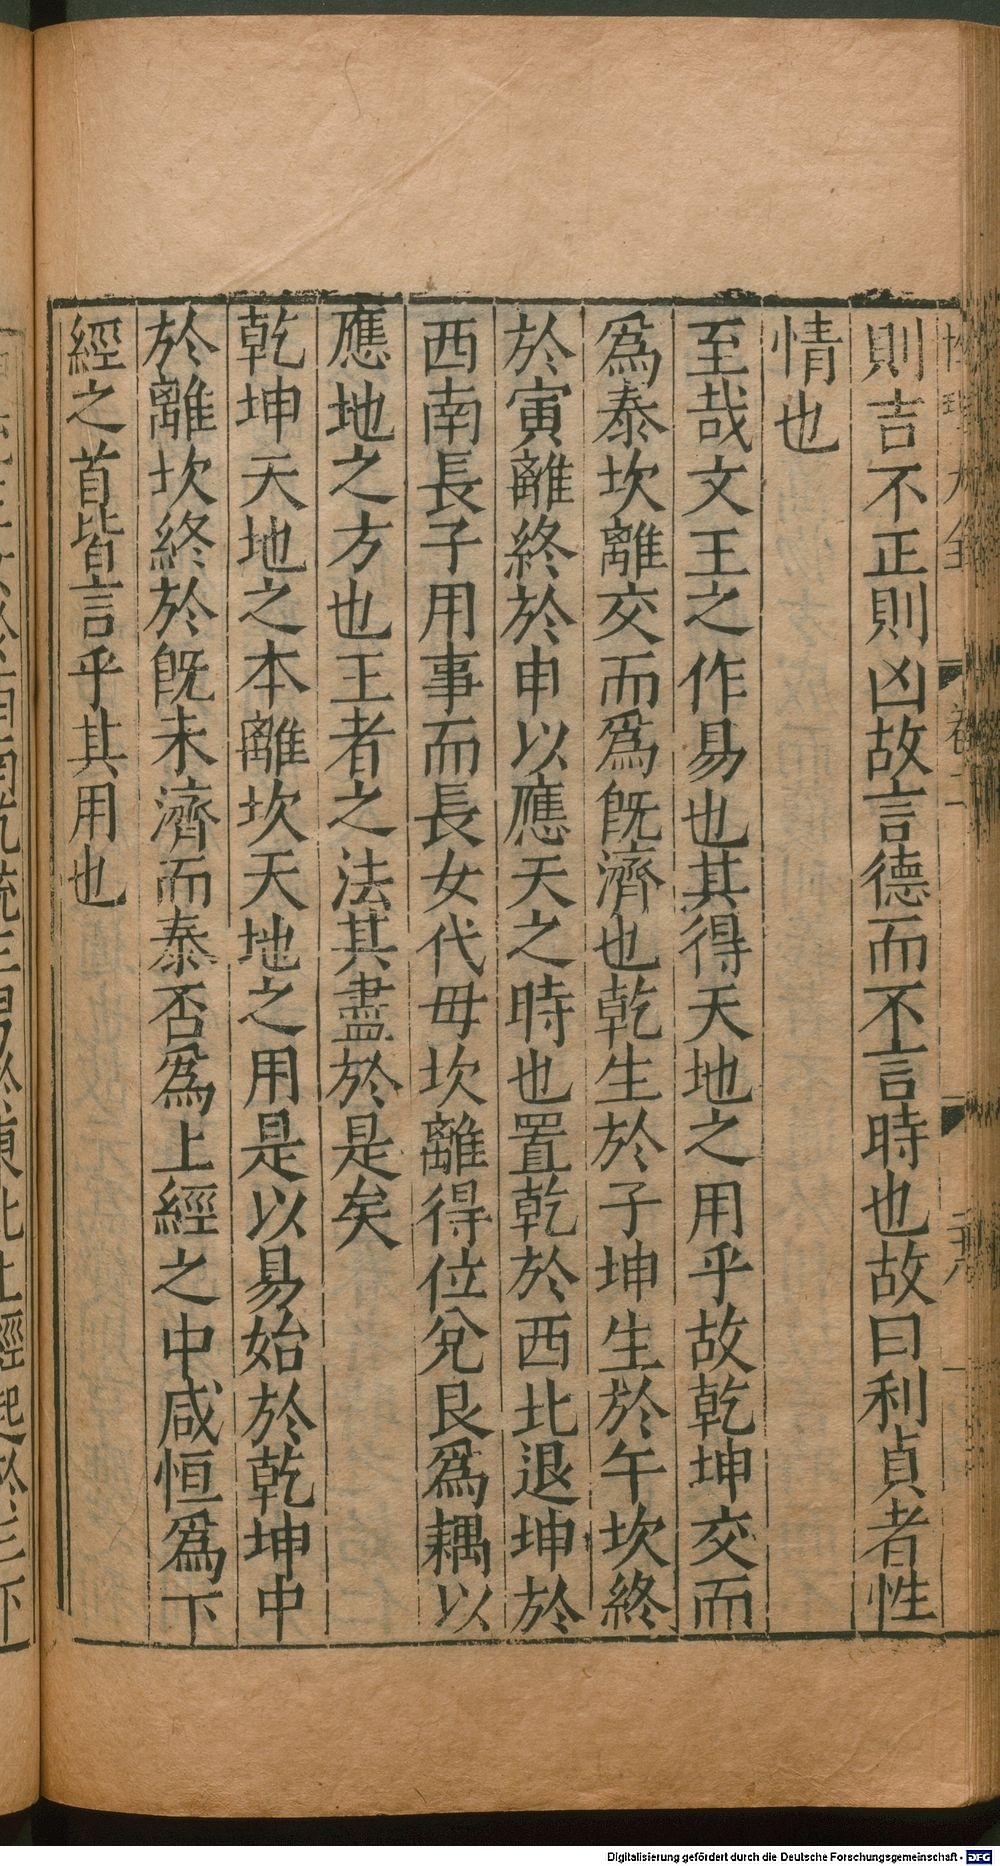 則吉不正則凶故言德而不言時也故曰利貞者性
情也
至哉文王之作易也其得天地之用乎故乾坤交而
爲泰坎離交而爲旣濟也乾生於子坤生於午坎終
於寅離終於申以應天之時也置乾於西北退坤於
西南長子用事而長女代母坎離得位兌艮爲耦以
應地之方也王者之法其盡於是矣
乾坤天地之本離坎天地之用是以易始於乾坤中
於離坎終於旣未濟而泰否爲上經之中咸恒爲下
經之首皆言乎其用也
Digitalisierung gefördert durch die Deutsche Forschungsgemeinschaft - DFG